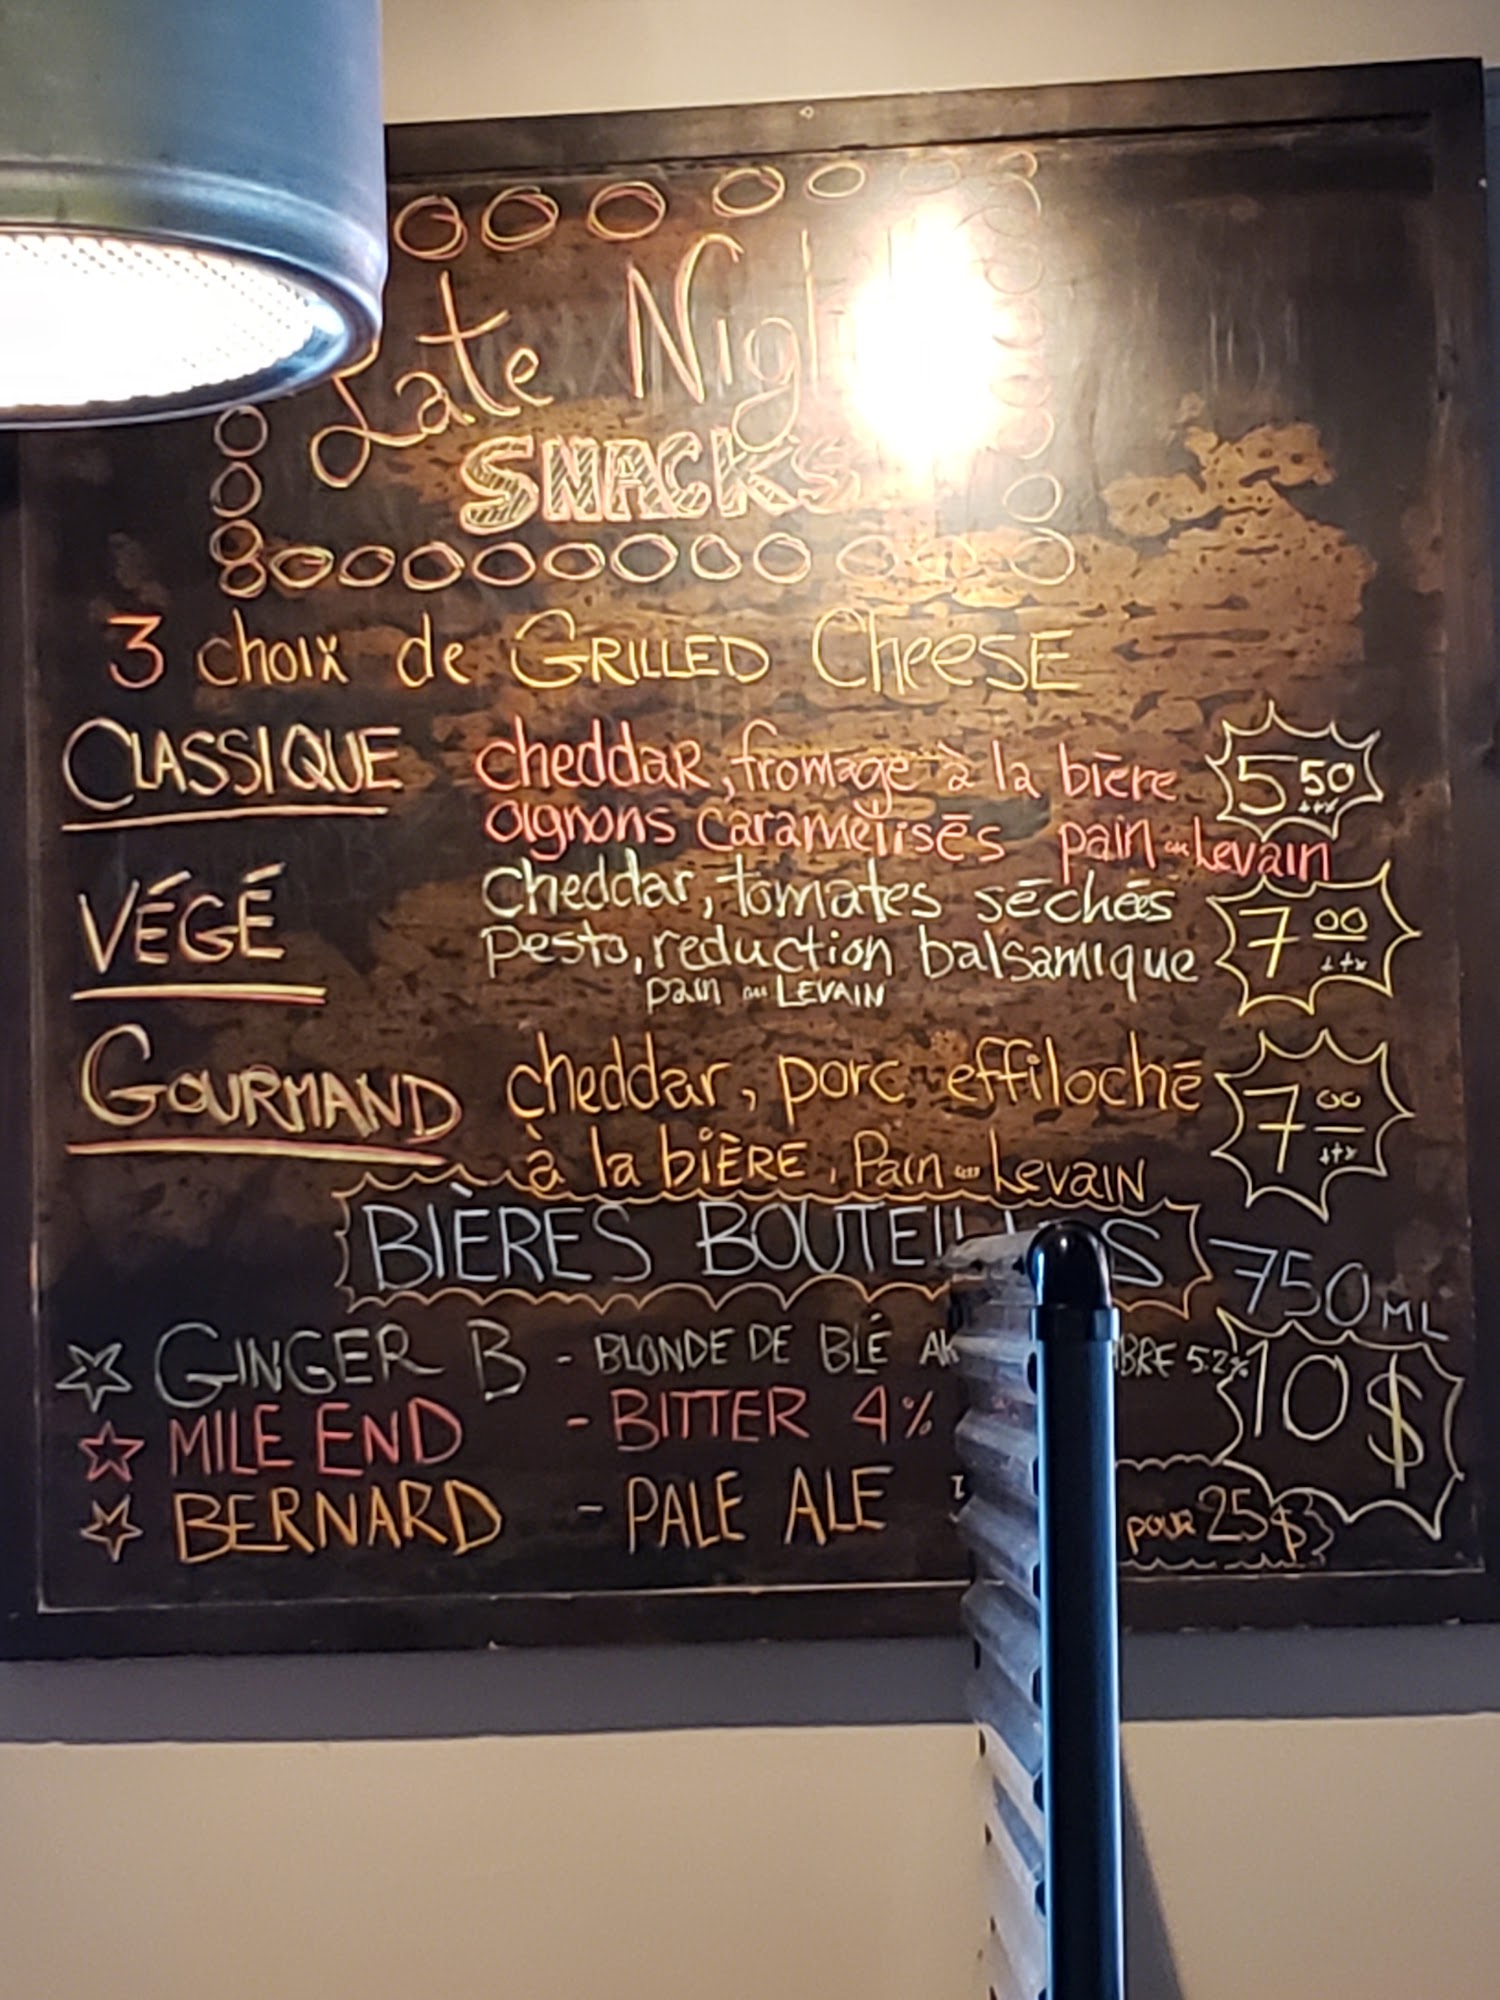 Late
SNACKS
3 choix de GRILLED CHEESE
CLASSIQUE cheddar, fromage à la bière 5 50 +++
oignons caramelisés pain au Levain
VÉGÉ Cheddar, tomates séchées 7 00
pesto, reduction balsamique
pain au LEVAIN
GOURMAND cheddar, porc effiloché 7 00
à la bière, Pain au Levain
BIÈRES 750 ML
GINGER B - BLONDE DE BLÉ 5.2% 10$
MILE END - BITTER 4%
BERNARD - PALE ALE pour 25$